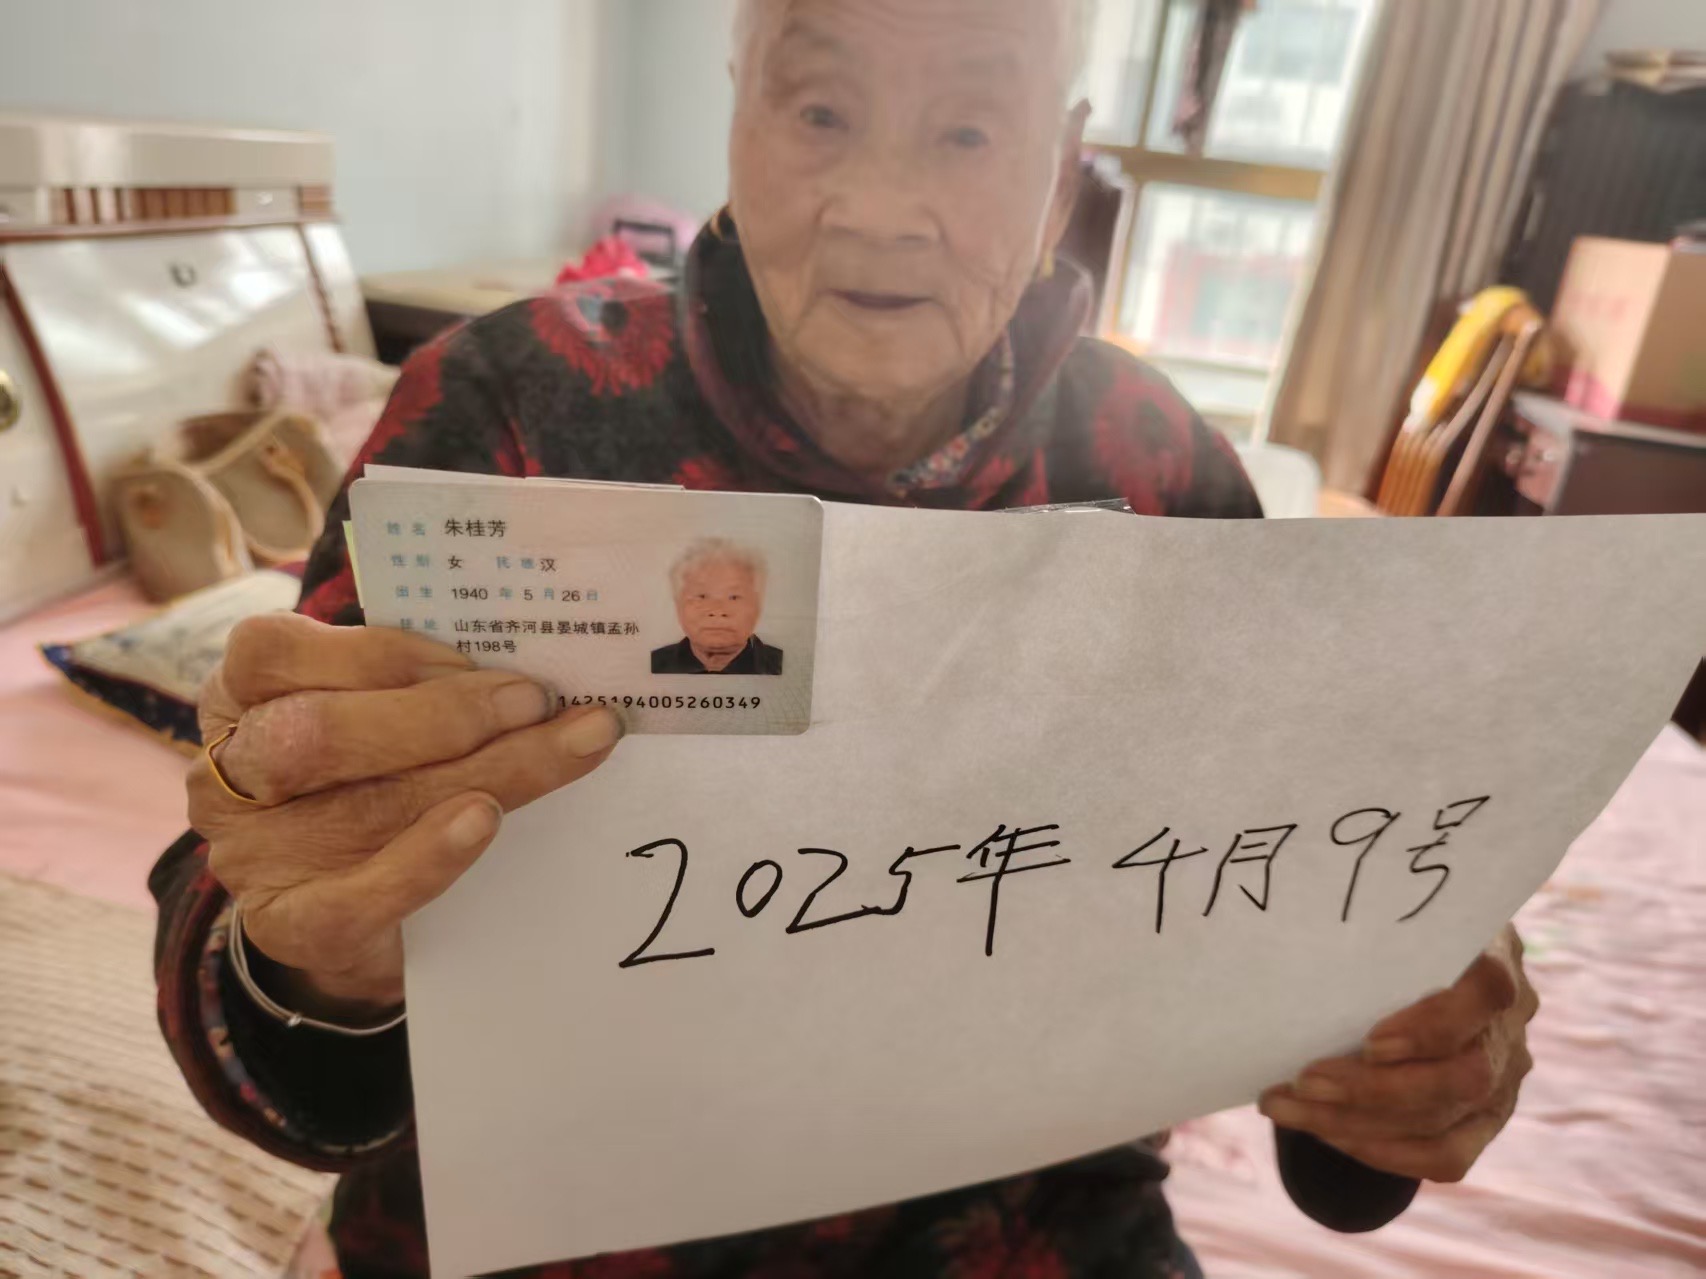 姓名 朱桂芳
性别 女 民族 汉
出生 1940 年 5 月 26 日
住址 山东省齐河县晏城镇孟孙
村198号
1425194005260349
2025年4月9号